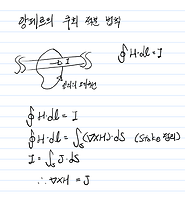 앙페르의 주회 적분 법칙
I
∮H·dl = I
임의의 폐곡선
∮H·dl = I
∮H·dl = ∫s(∇×H)·ds (Stoke 정리)
I = ∫s J·ds
∴ ∇×H = J